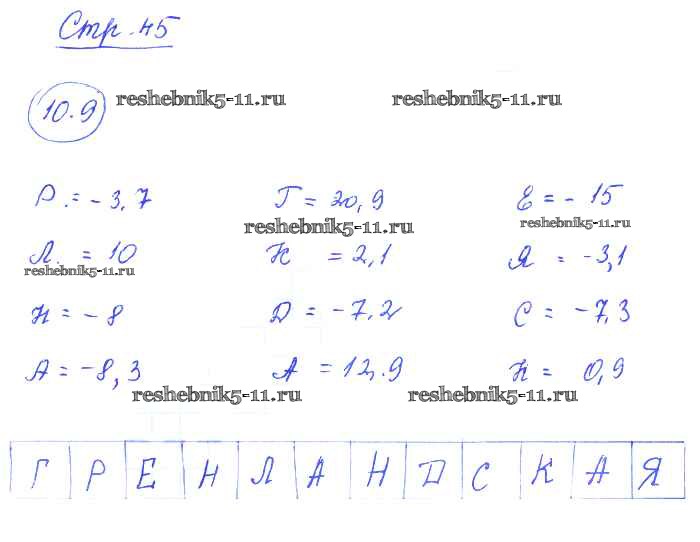 Стр. 45
10.9 reshebnik5-11.ru reshebnik5-11.ru
Р. = - 3,7 Г = 20,9 Е = - 15
reshebnik5-11.ru reshebnik5-11.ru
Л. = 10 Н = 2,1 Я = -3,1
reshebnik5-11.ru
Н = - 8 Д = - 7,2 С = - 7,3
А = -8,3 А = 12.9 К = 0,9
reshebnik5-11.ru reshebnik5-11.ru
Г Р Е Н Л А Н Д С К А Я